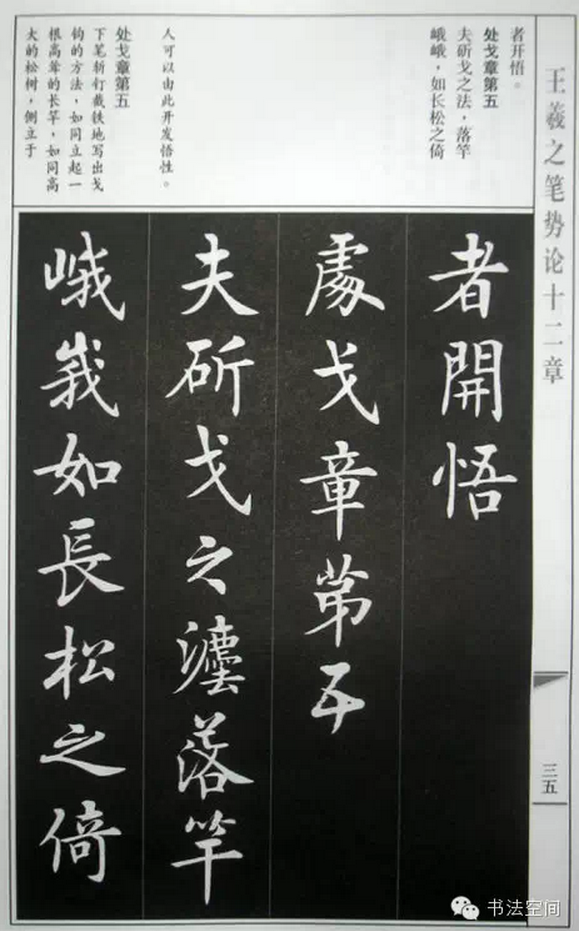 王羲之笔势论十二章
三五
者开悟。
处戈章第五
夫斫戈之法，落竿
峨峨，如长松之倚
人可以由此开发悟性。
处戈章第五
下笔斩钉截铁地写出戈
钩的方法，如同立起一
根高耸的长竿，如同高
大的松树，倒立于
者開悟
處戈章第五
夫斫戈之灋落竿
峨峩如長松之倚
书法空间